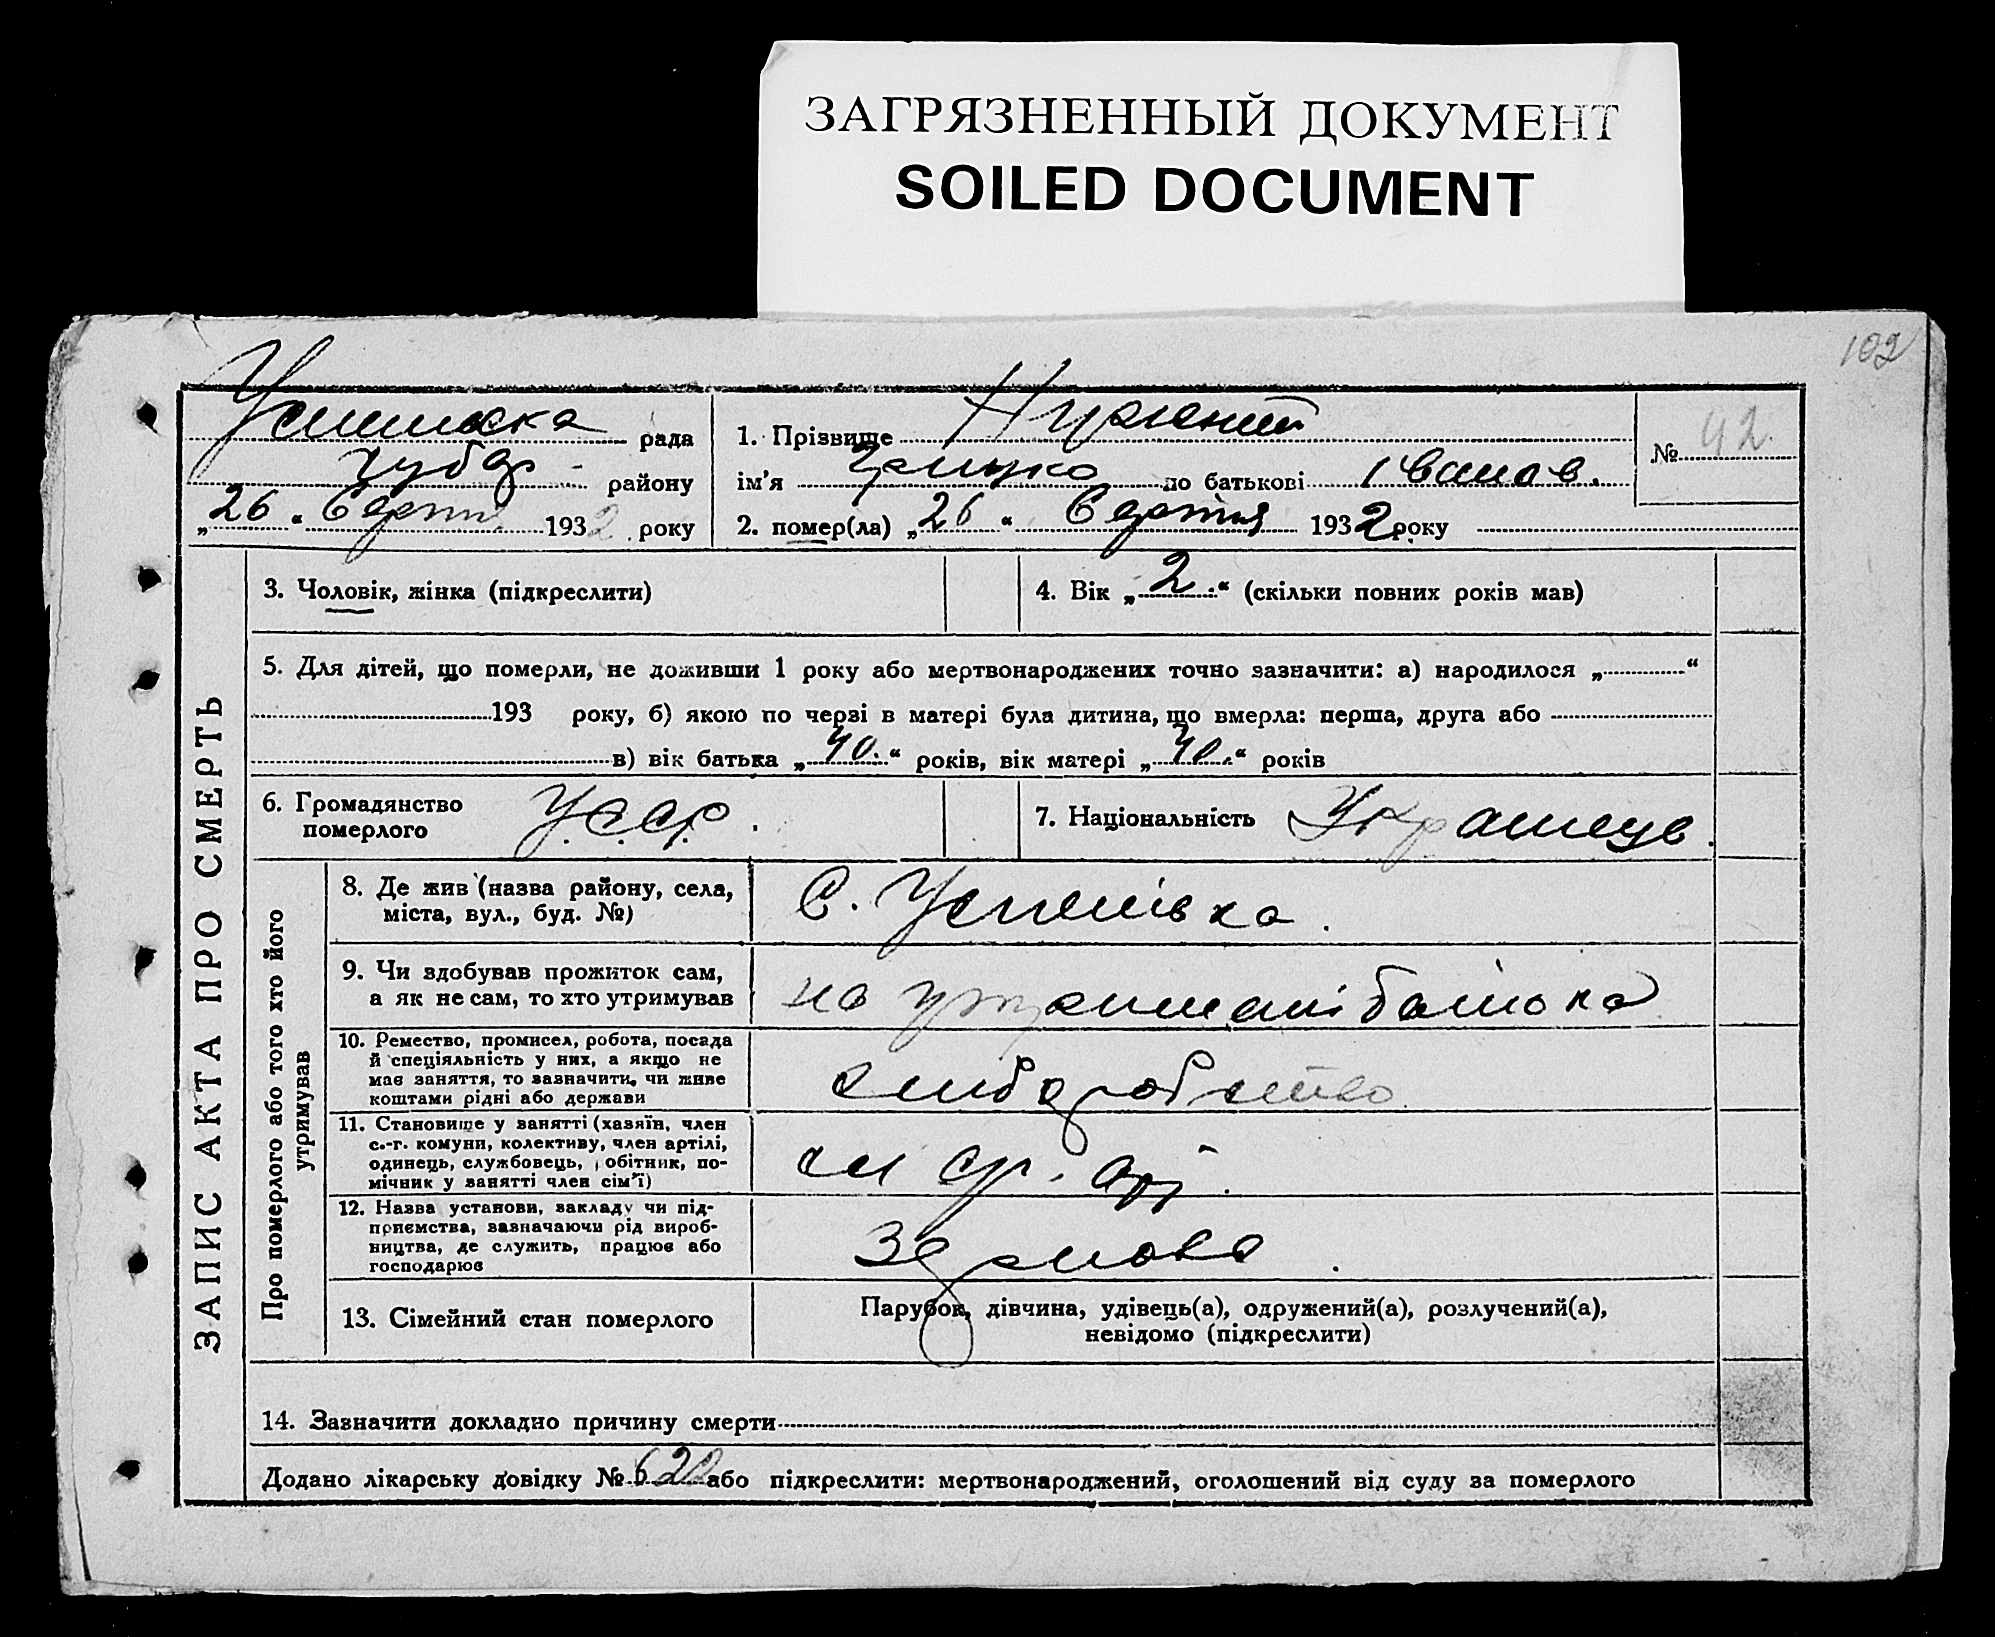 ЗАГРЯЗНЕННЫЙ ДОКУМЕНТ
SOILED DOCUMENT
102
рада
району
„26“ Серпня 1932 року
1. Прізвище Нужний
ім'я Грицко по батькові Іванов.
2. помер(ла) „26“ Серпня 1932 року
№ 42.
ЗАПИС АКТА ПРО СМЕРТЬ
3. Чоловік, жінка (підкреслити)
4. Вік „2“ (скільки повних років мав)
5. Для дітей, що померли, не доживши 1 року або мертвонароджених точно зазначити: а) народилося „ “
193 року, б) якою по черзі в матері була дитина, що вмерла: перша, друга або
в) вік батька „40.“ років, вік матері „40.“ років
6. Громадянство
померлого
УССР.
7. Національність Українець.
Про померлого або того хто його
утримував
8. Де жив (назва району, села,
міста, вул., буд. №)
С. Успенівка.
9. Чи здобував прожиток сам,
а як не сам, то хто утримував
на утриманi батька
10. Ремество, промисел, робота, посада
й спеціяльність у них, а якщо не
має заняття, то зазначити, чи живе
коштами рідні або держави
хлиборобство
11. Становище у занятті (хазяїн, член
с.-г. комуни, колективу, член артілі,
одинець, службовець, робітник, по-
мічник у занятті член сім'ї)
12. Назва установи, закладу чи під-
приємства, зазначаючи рід вироб-
ництва, де служить, працює або
господарює
Зернова.
13. Сімейний стан померлого
Парубок, дівчина, удівець(а), одружений(а), розлучений(а),
невідомо (підкреслити)
14. Зазначити докладно причину смерти
Додано лікарську довідку № або підкреслити: мертвонароджений, оголошений від суду за померлого